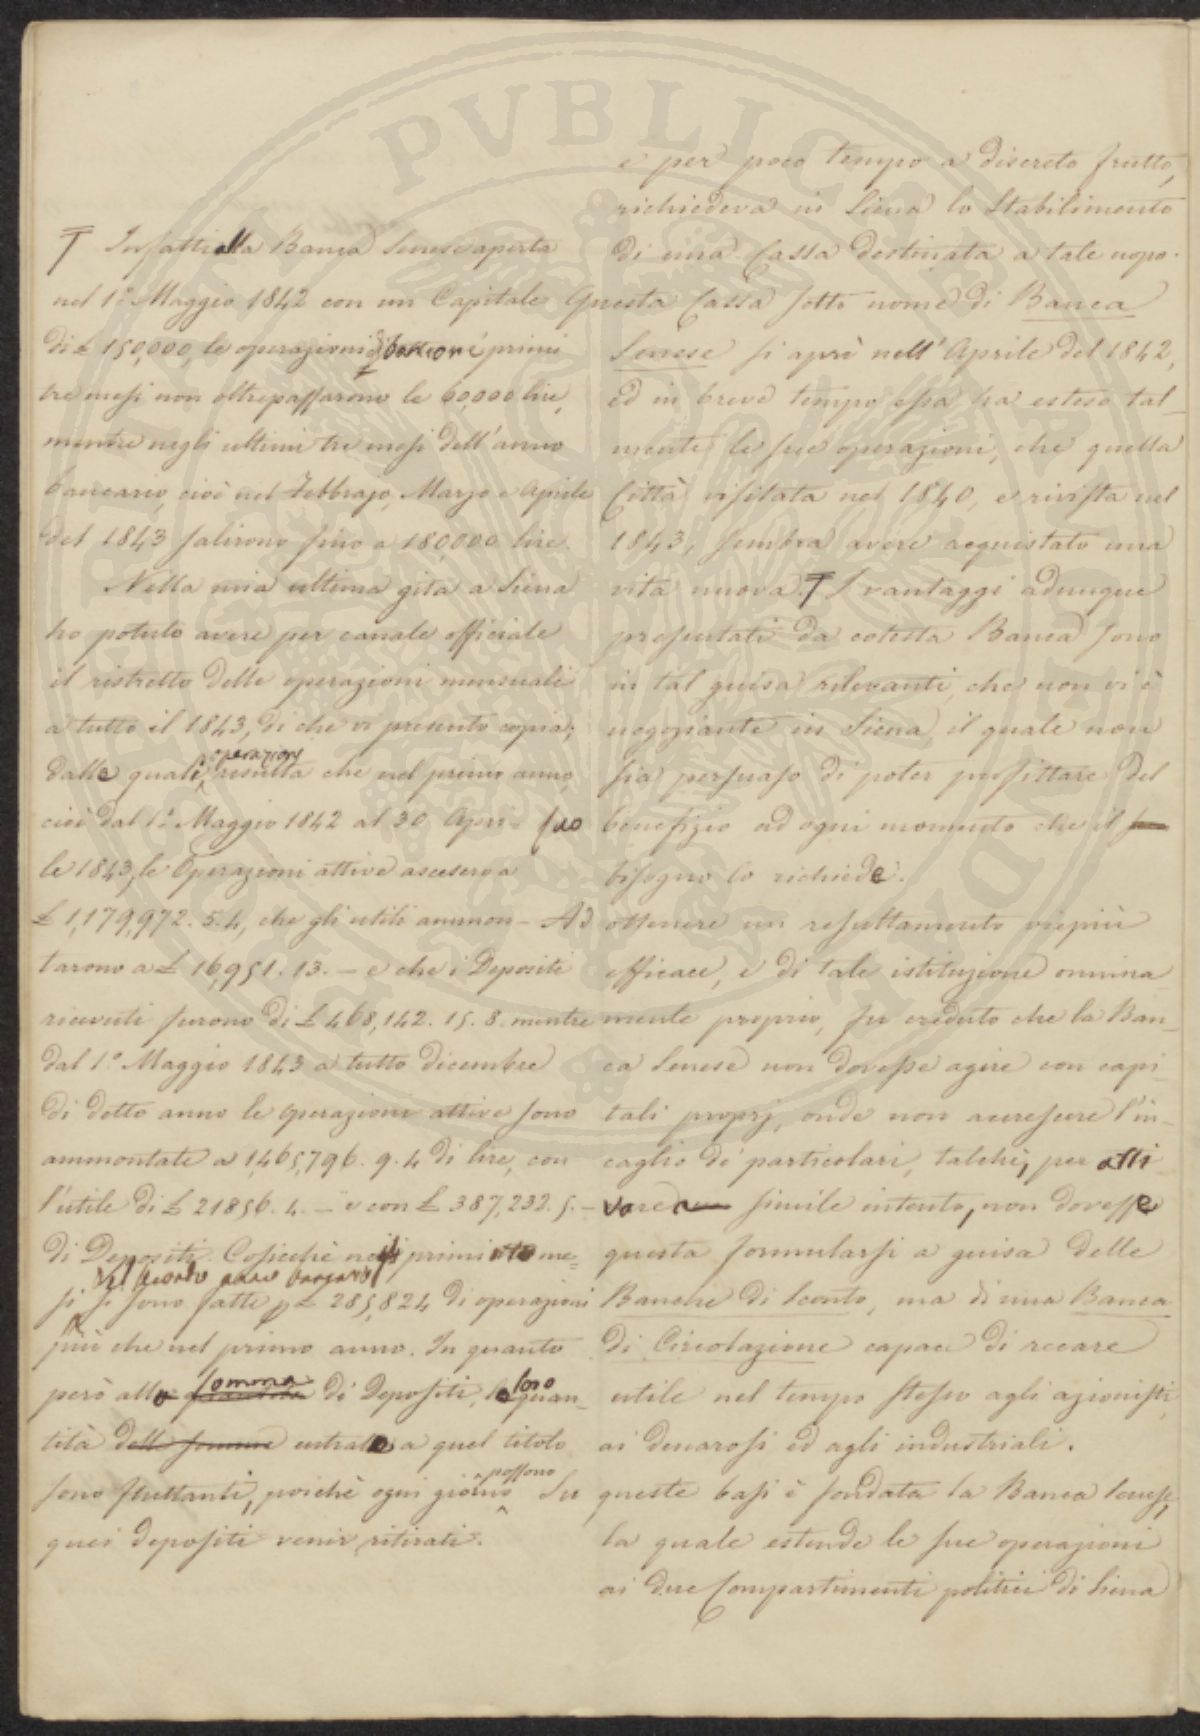 e per poco tempo a discreto frutto,
richiedeva in Siena lo Stabilimento
di una Cassa destinata a tale uopo.
Questa Cassa sotto nome di Banca
Senese si aprì nell'Aprile del 1842,
ed in breve tempo essa ha esteso tal-
mente le sue operazioni, che quella
Città visitata nel 1840, e rivista nel
1843, sembra avere acquistato una
vita nuova. Ŧ I vantaggi adunque
presentati da cotesta Banca sono
in tal guisa rilevanti, che non vi è
negoziante in Siena, il quale non
sia persuaso di poter profittare del
benefizio ad ogni momento che il
suo bisogno lo richiede.
Ad ottenere un resultamento vieppiù
efficace, e di tale istituzione omnina-
mente proprio, fu creduto che la Ban-
ca Senese non dovesse agire con capi-
tali proprj, onde non accrescere l'in-
caglio de' particolari, talchè, per atti-
vare simile intento, non dovesse
questa formularsi a guisa delle
Banche di Sconto, ma di una Banca
di Circolazione capace di recare
utile nel tempo stesso agli azionisti,
ai denarosi ed agli industriali.
Su queste basi è fondata la Banca Senese,
la quale estende le sue operazioni
ai due Compartimenti politici di Siena
Ŧ Infatti alla Banca Senese aperta
nel 1.° Maggio 1842 con un Capitale
di £ 150,000, le operazioni primi
tre mesi non oltrepassarono le 60,000 lire,
mentre negli ultimi tre mesi dell'anno
bancario, cioè nel Febbrajo, Marzo e Aprile
del 1843 salirono fino a 180,000 lire.
Nella mia ultima gita a Siena
ho potuto avere per canale officiale
il ristretto delle operazioni mensuali
a tutto il 1843, di che vi presento copia;
dalle quali operazioni risulta che nel primo anno,
cioè dal 1.° Maggio 1842 al 30 Apri-
le 1843, le Operazioni attive ascesero a
£ 1,179,972. 5. 4, che gli utili ammon-
tarono a £ 16,951. 13. – e che i Depositi
ricevuti furono di £ 468,142. 15. 8. mentre
dal 1.° Maggio 1843 a tutto dicembre
di detto anno le operazioni attive sono
ammontate a 1,465,796. 9. 4 di lire, con
l'utile di £ 21856. 4. – e con £ 387,232. 5. –
di Depositi. Cosicchè nei primi otto me-
si del secondo anno bancario si sono fatte £ 285,824 di operazioni
più che nel primo anno. In quanto
però alla somma di Depositi, le loro quan-
tità entrate a quel titolo
sono fluttanti, poichè ogni giorno possono
quei depositi venir ritirati.
PVBLICAE